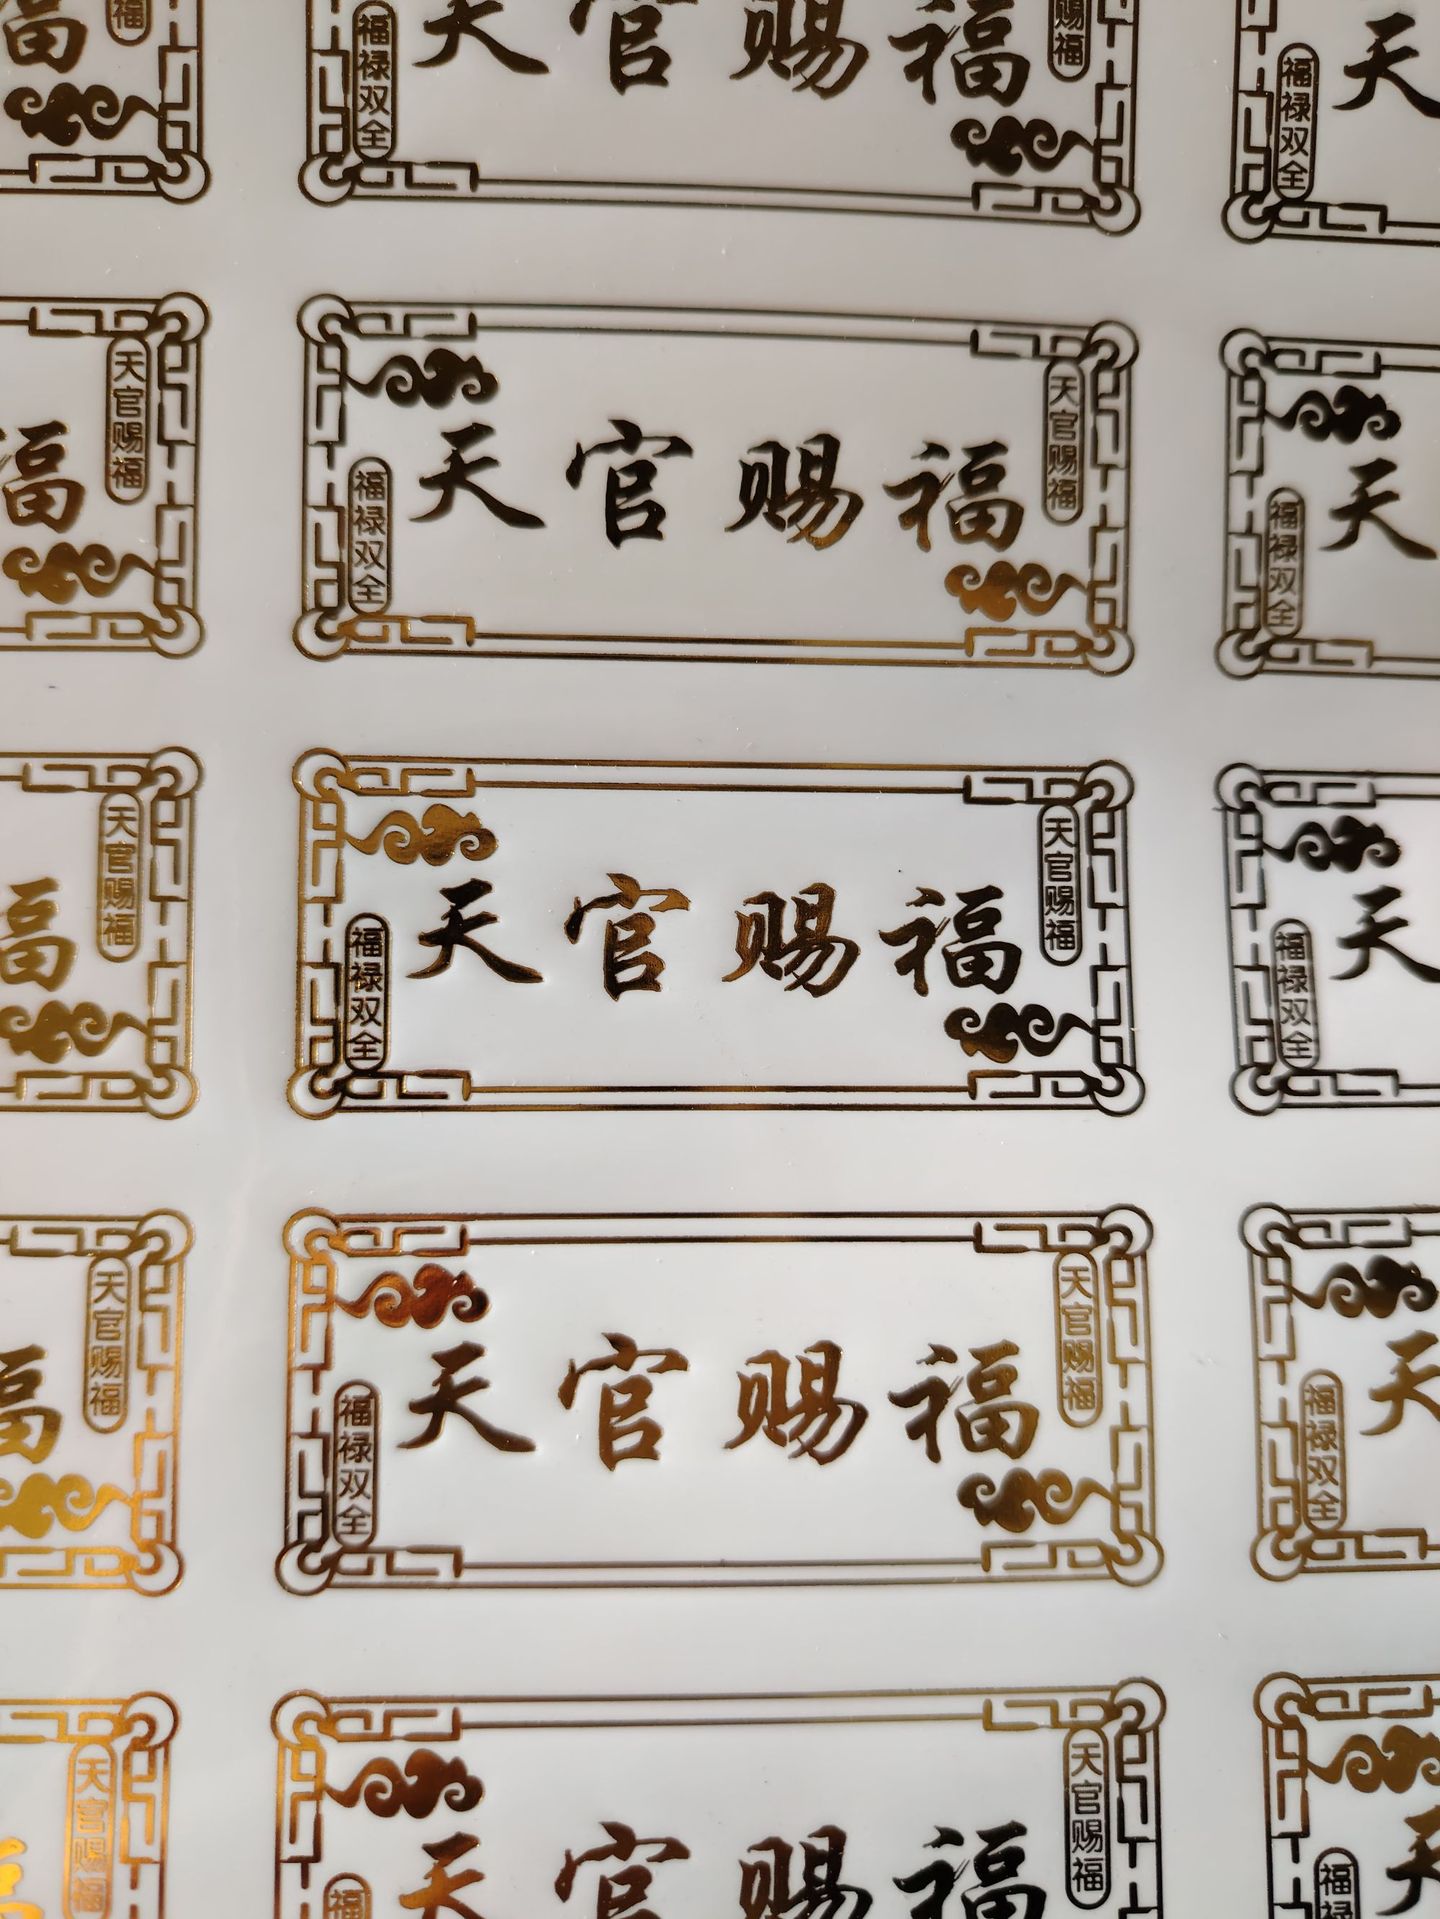 福
福
福禄双全
天官赐福
赐福
福禄双全
天
福
天官赐福
福禄双全
天官赐福
天官赐福
福禄双全
天
福
天官赐福
福禄双全
天官赐福
天官赐福
福禄双全
天
福
天官赐福
福禄双全
天官赐福
天官赐福
福禄双全
天
福
天官赐福
福
天官赐福
天官赐福
福禄
天